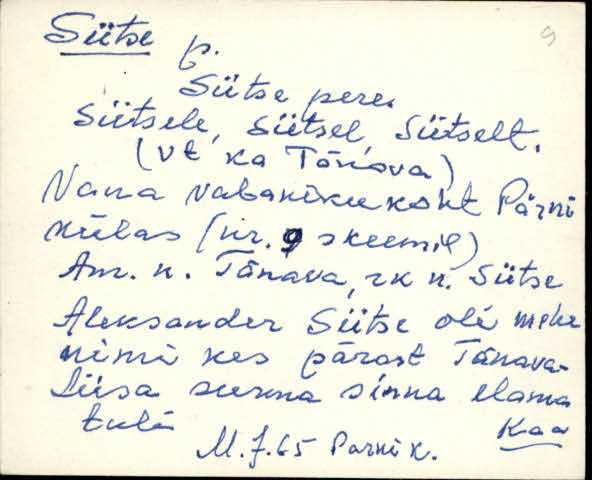 9
Siitse p.
Siitse pere.
Siitsele, Siitsel, Siitselt.
(vt ka Tänava)
Vana vabanikukoht Pärni
külas (nr. 9 skeemil)
Am. n. Tänava, rk n. Siitse
Aleksander Siitse oli mehe
nimi kes pärast Tänava-
Liisa surma sinna elama
tuli
Kaa
M. J. 65 Pärni k.